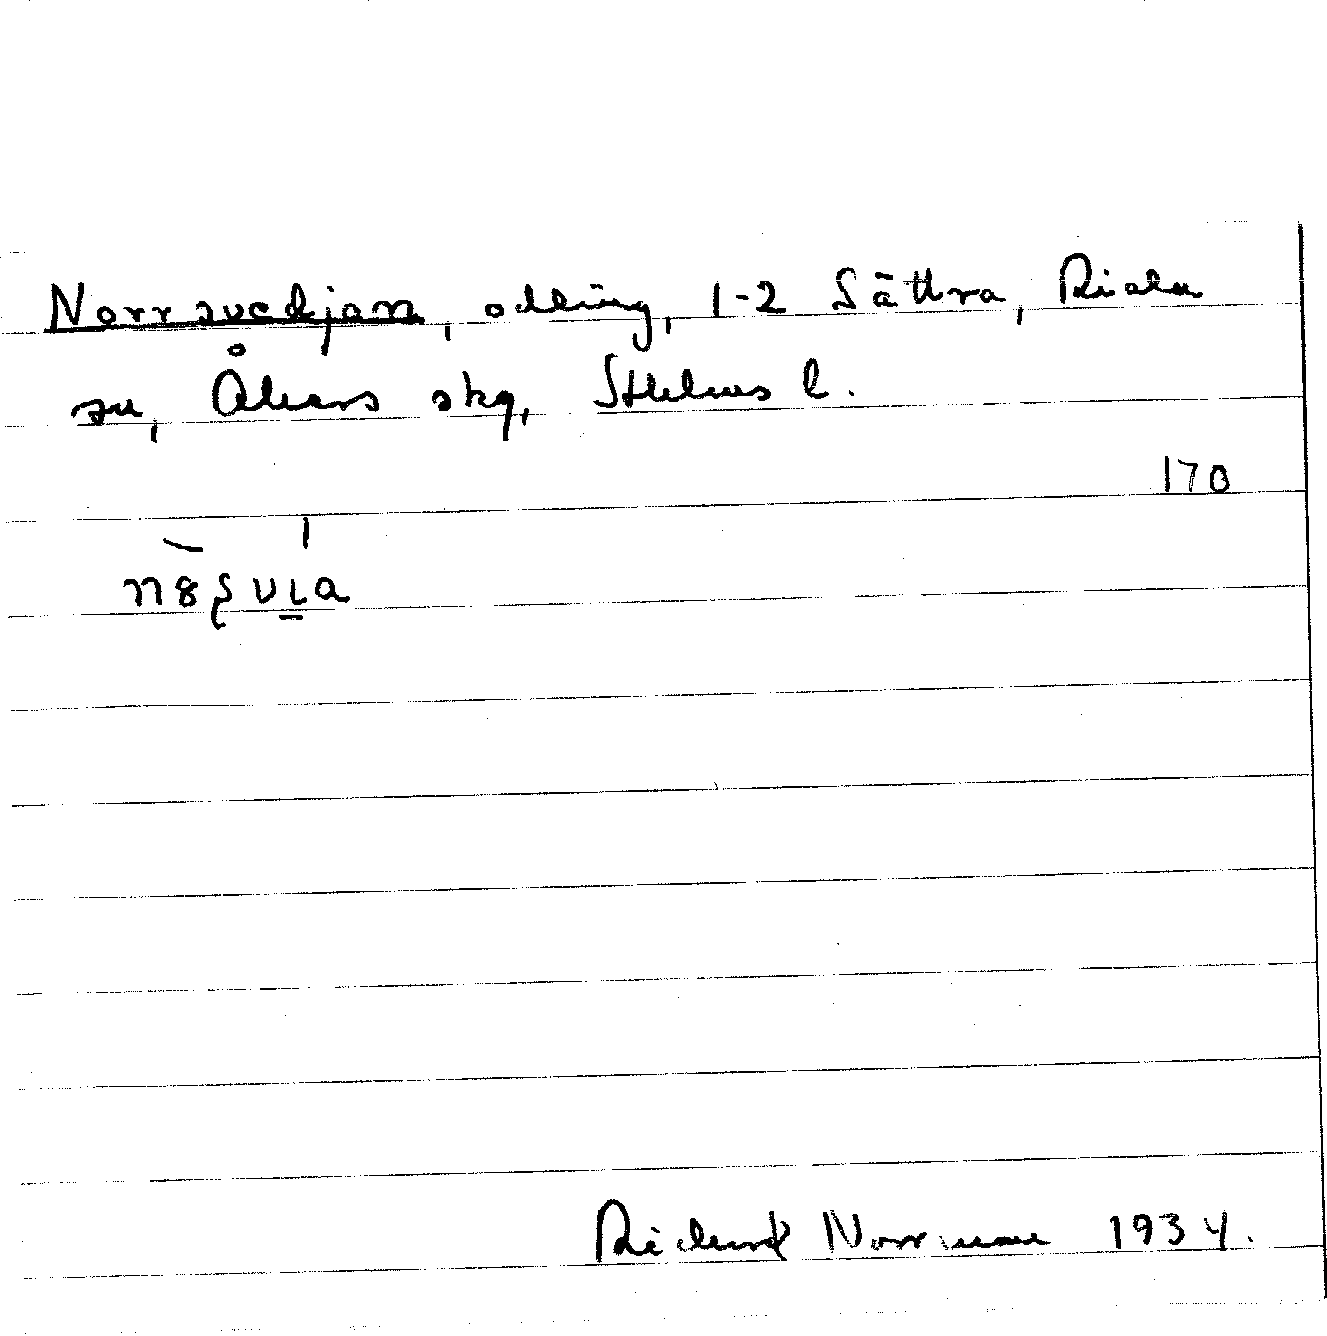 Norrsvedjan, odling, 1-2 Sättra, Riala
sn, Åkers skg, Sthlms l.
170
Rickard Norrman 1934.